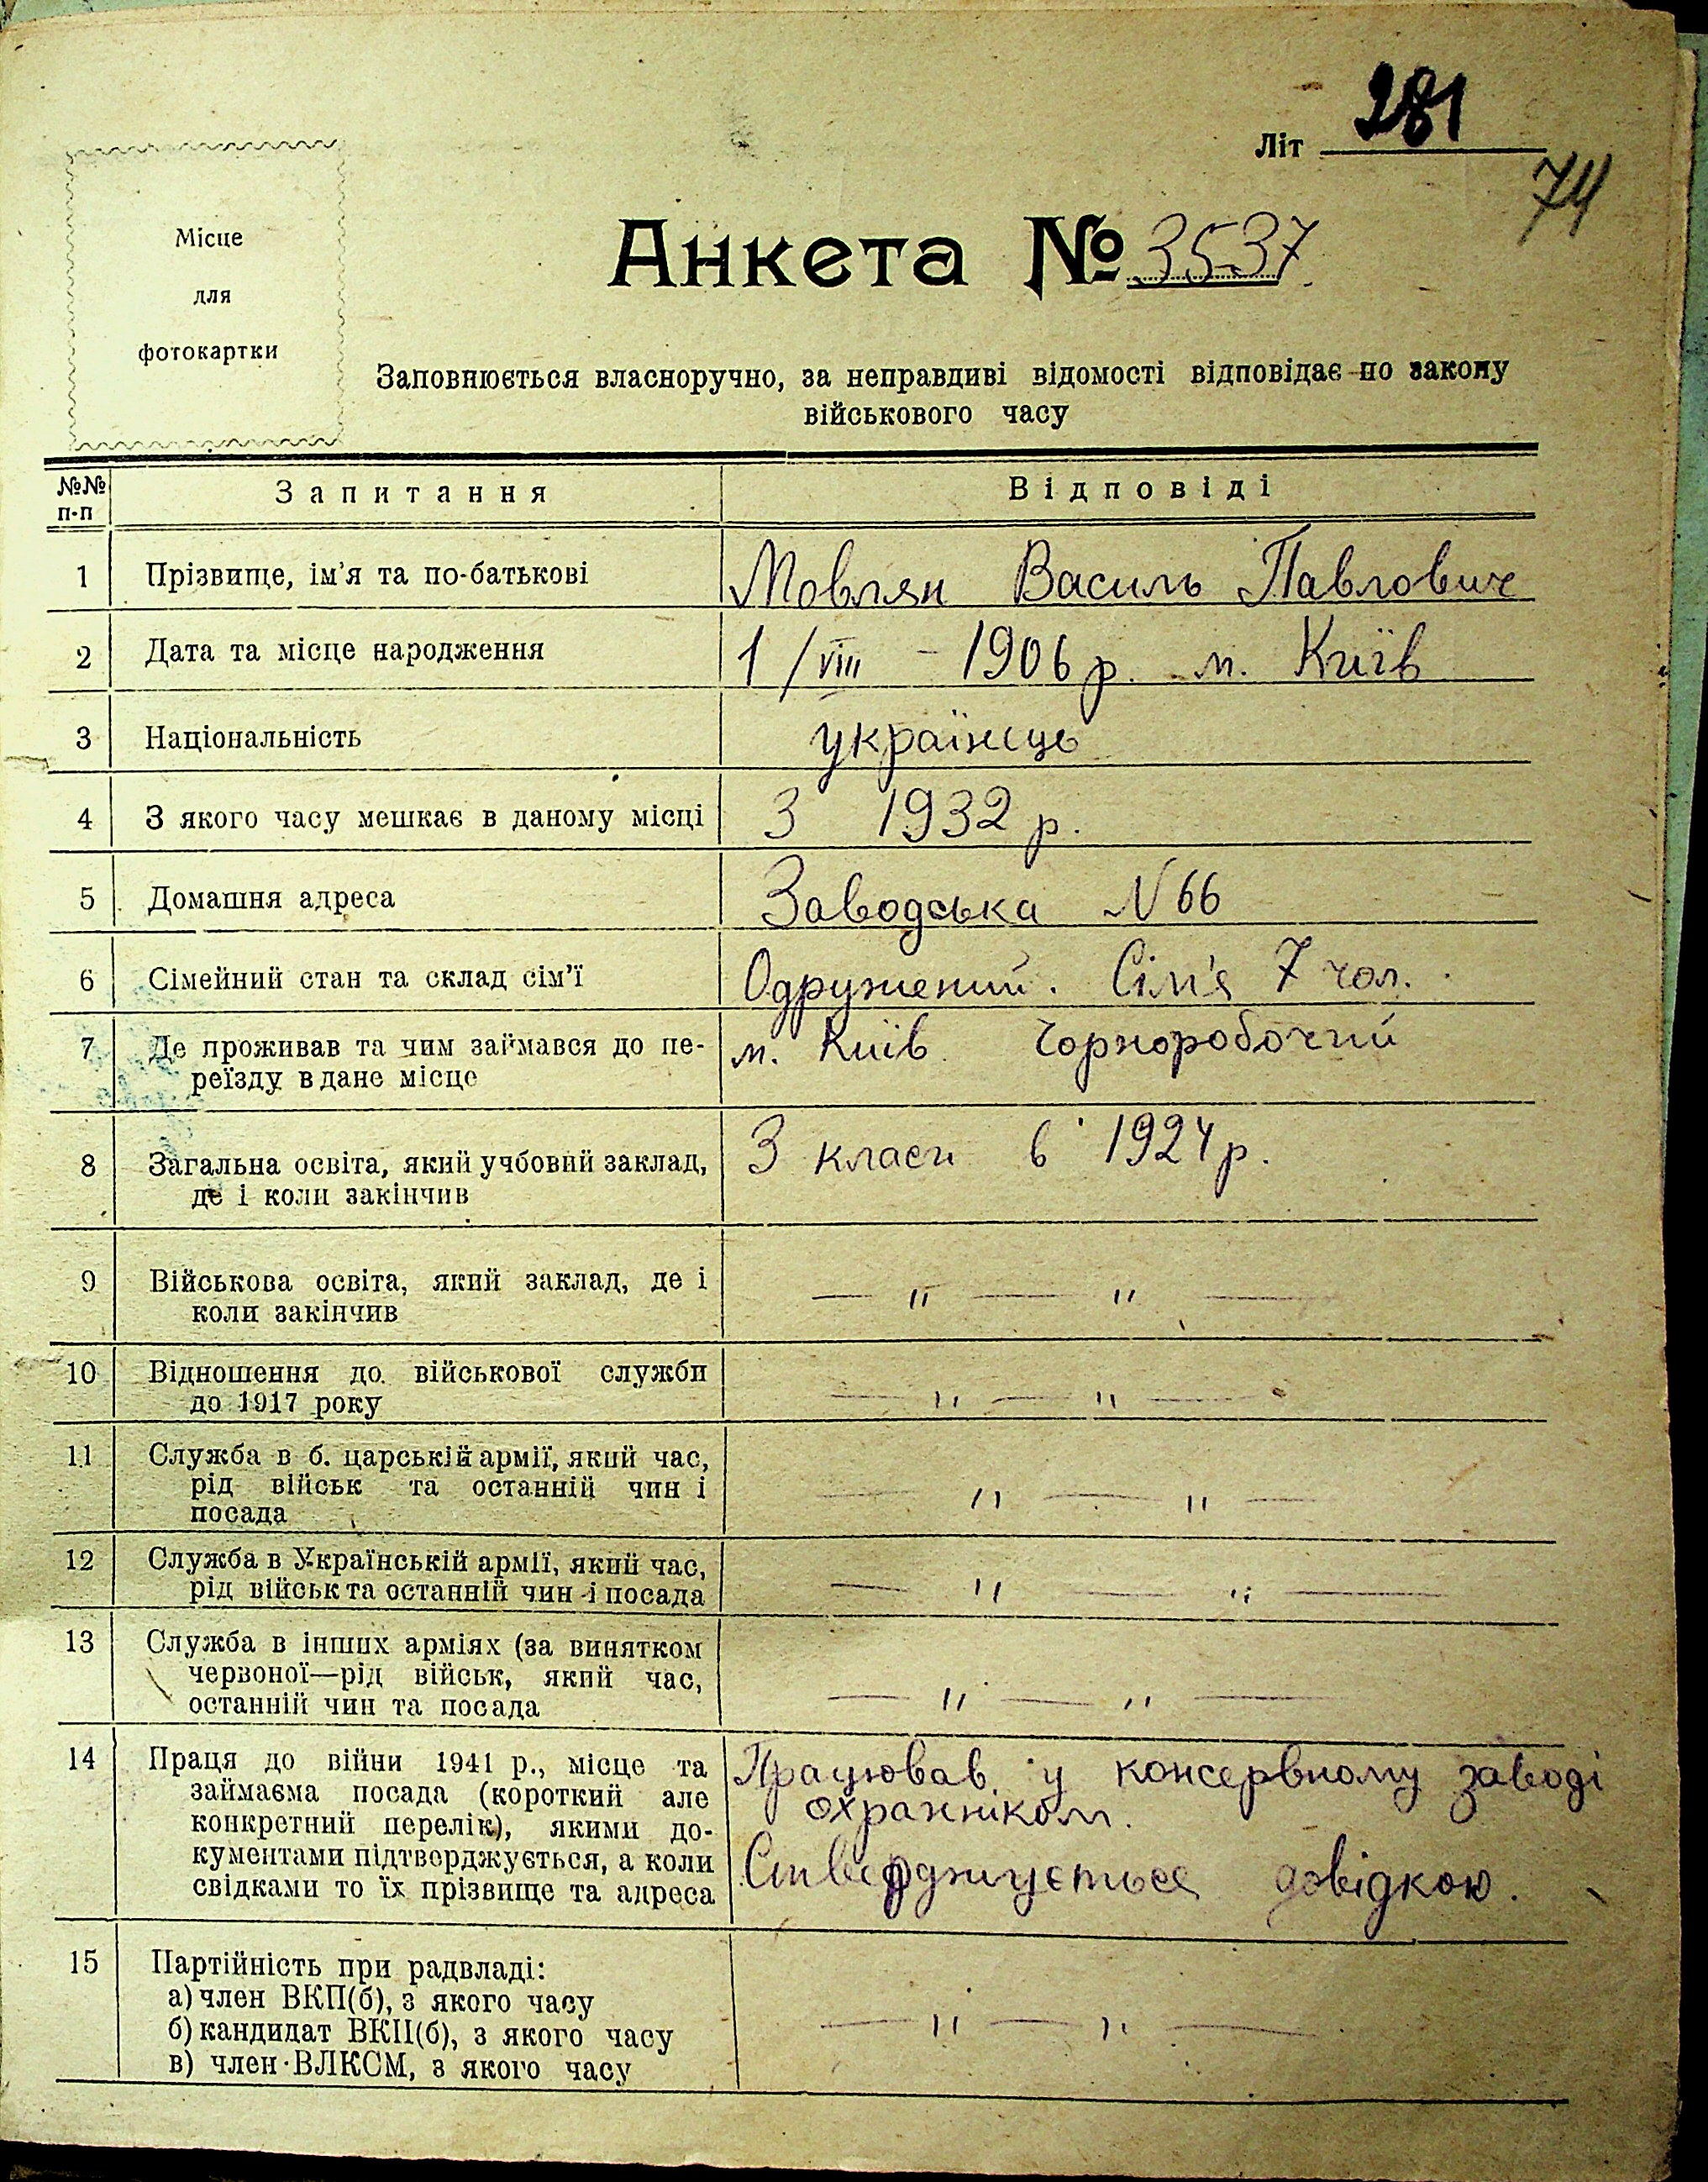 Літ 281
74
Місце
для
фотокартки
Анкета № 3537.
Заповнюється власноручно, за неправдиві відомості відповідає по закону
військового часу
№№
п-п
Запитання
Відповіді
1 Прізвище, ім'я та по-батькові Мовлян Василь Павлович
2 Дата та місце народження 1/VIII - 1906 р. м. Київ
3 Національність українець
4 З якого часу мешкає в даному місці З 1932 р.
5 Домашня адреса Заводська N 66
6 Сімейний стан та склад сім'ї Одружений. Сім'я 7 чол.
7 Де проживав та чим займався до пе-
реїзду в дане місце
м. Київ Чорноробочий
8 Загальна освіта, який учбовий заклад,
де і коли закінчив
3 класи в 1924 р.
9 Військова освіта, який заклад, де і
коли закінчив
— " — " —
10 Відношення до військової служби
до 1917 року
— " — " —
11 Служба в б. царській армії, який час,
рід військ та останній чин і
посада
— " — " —
12 Служба в Українській армії, який час,
рід військ та останній чин і посада
— " — " —
13 Служба в інших арміях (за винятком
червоної—рід військ, який час,
останній чин та посада
— " — " —
14 Праця до війни 1941 р., місце та
займаєма посада (короткий але
конкретний перелік), якими до-
кументами підтверджується, а коли
свідками то їх прізвище та адреса
Працював у консервному заводі
охранніком.
Стверджується довідкою.
15 Партійність при радвладі:
а) член ВКП(б), з якого часу
б) кандидат ВКП(б), з якого часу
в) член ВЛКСМ, з якого часу
— " — " —